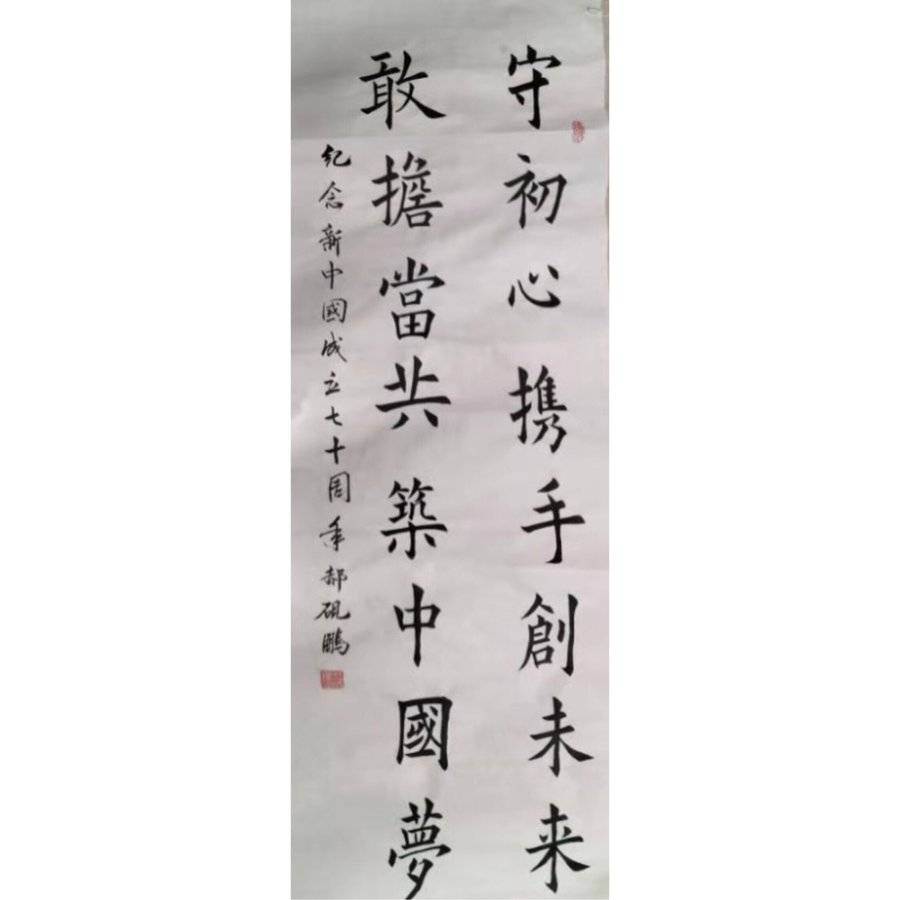 守初心携手創未来
敢擔當共築中國夢
紀念新中國成立七十周年郝硯鵬